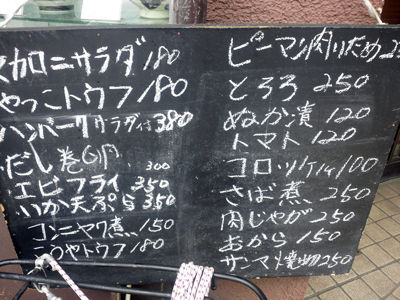 マカロニサラダ 180
やっこトウフ 180
ハンバーグサラダ付 380
だし巻 300
エビフライ 350
いか天ぷら 350
コンニャク煮 150
こうやトウフ 180
ピーマン肉いため
とろろ 250
ぬか漬 120
トマト 120
コロッケ 100
さば煮 250
肉じゃが 250
おから 150
サンマ焼物 250